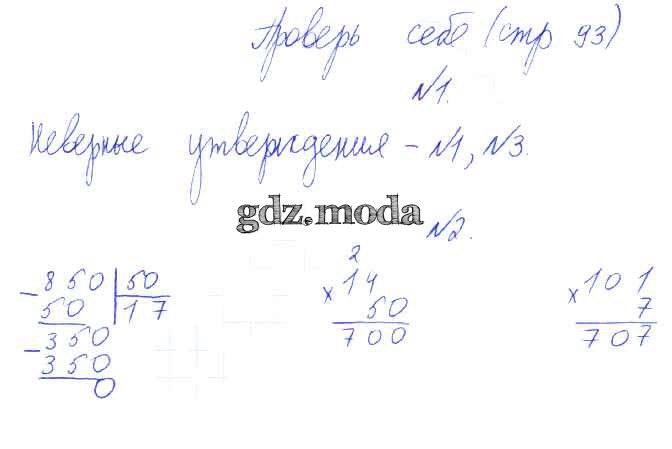 Проверь себе (стр 93)
№1.
Неверные утверждения - №1, №3.
gdz.moda
№2.
2
- 850 | 50
50 | 17
- 350
350
0
× 14
50
700
× 101
7
707